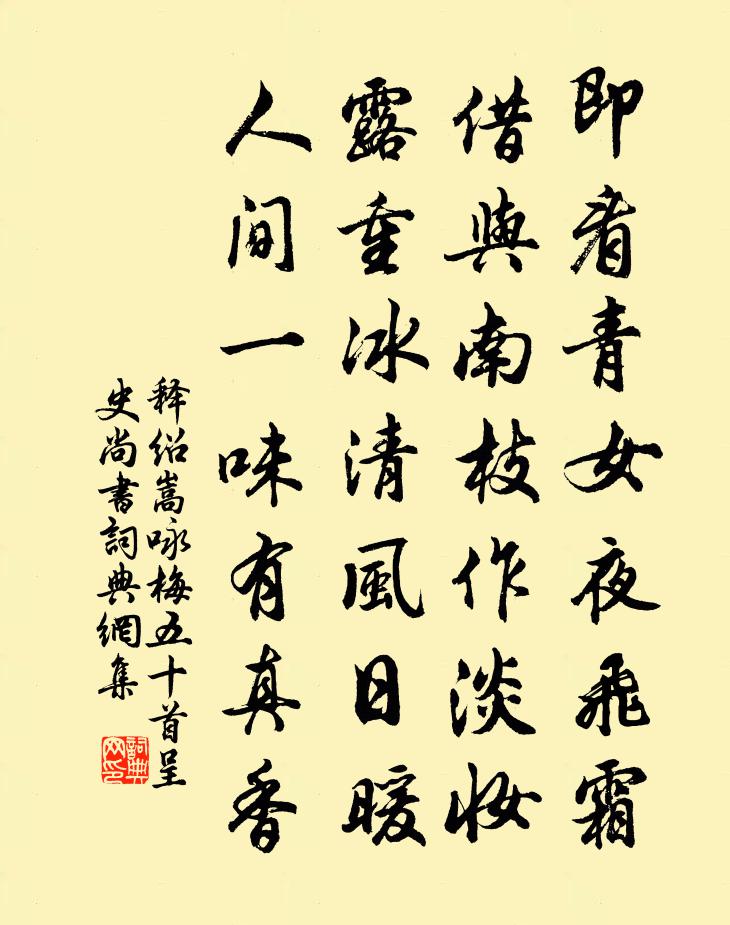 即看青女夜飛霜
借與南枝作淡妝
露重冰清風日暖
人间一味有真香
释绍嵩咏梅五十首呈
史尚書詞典網集
詞典网印